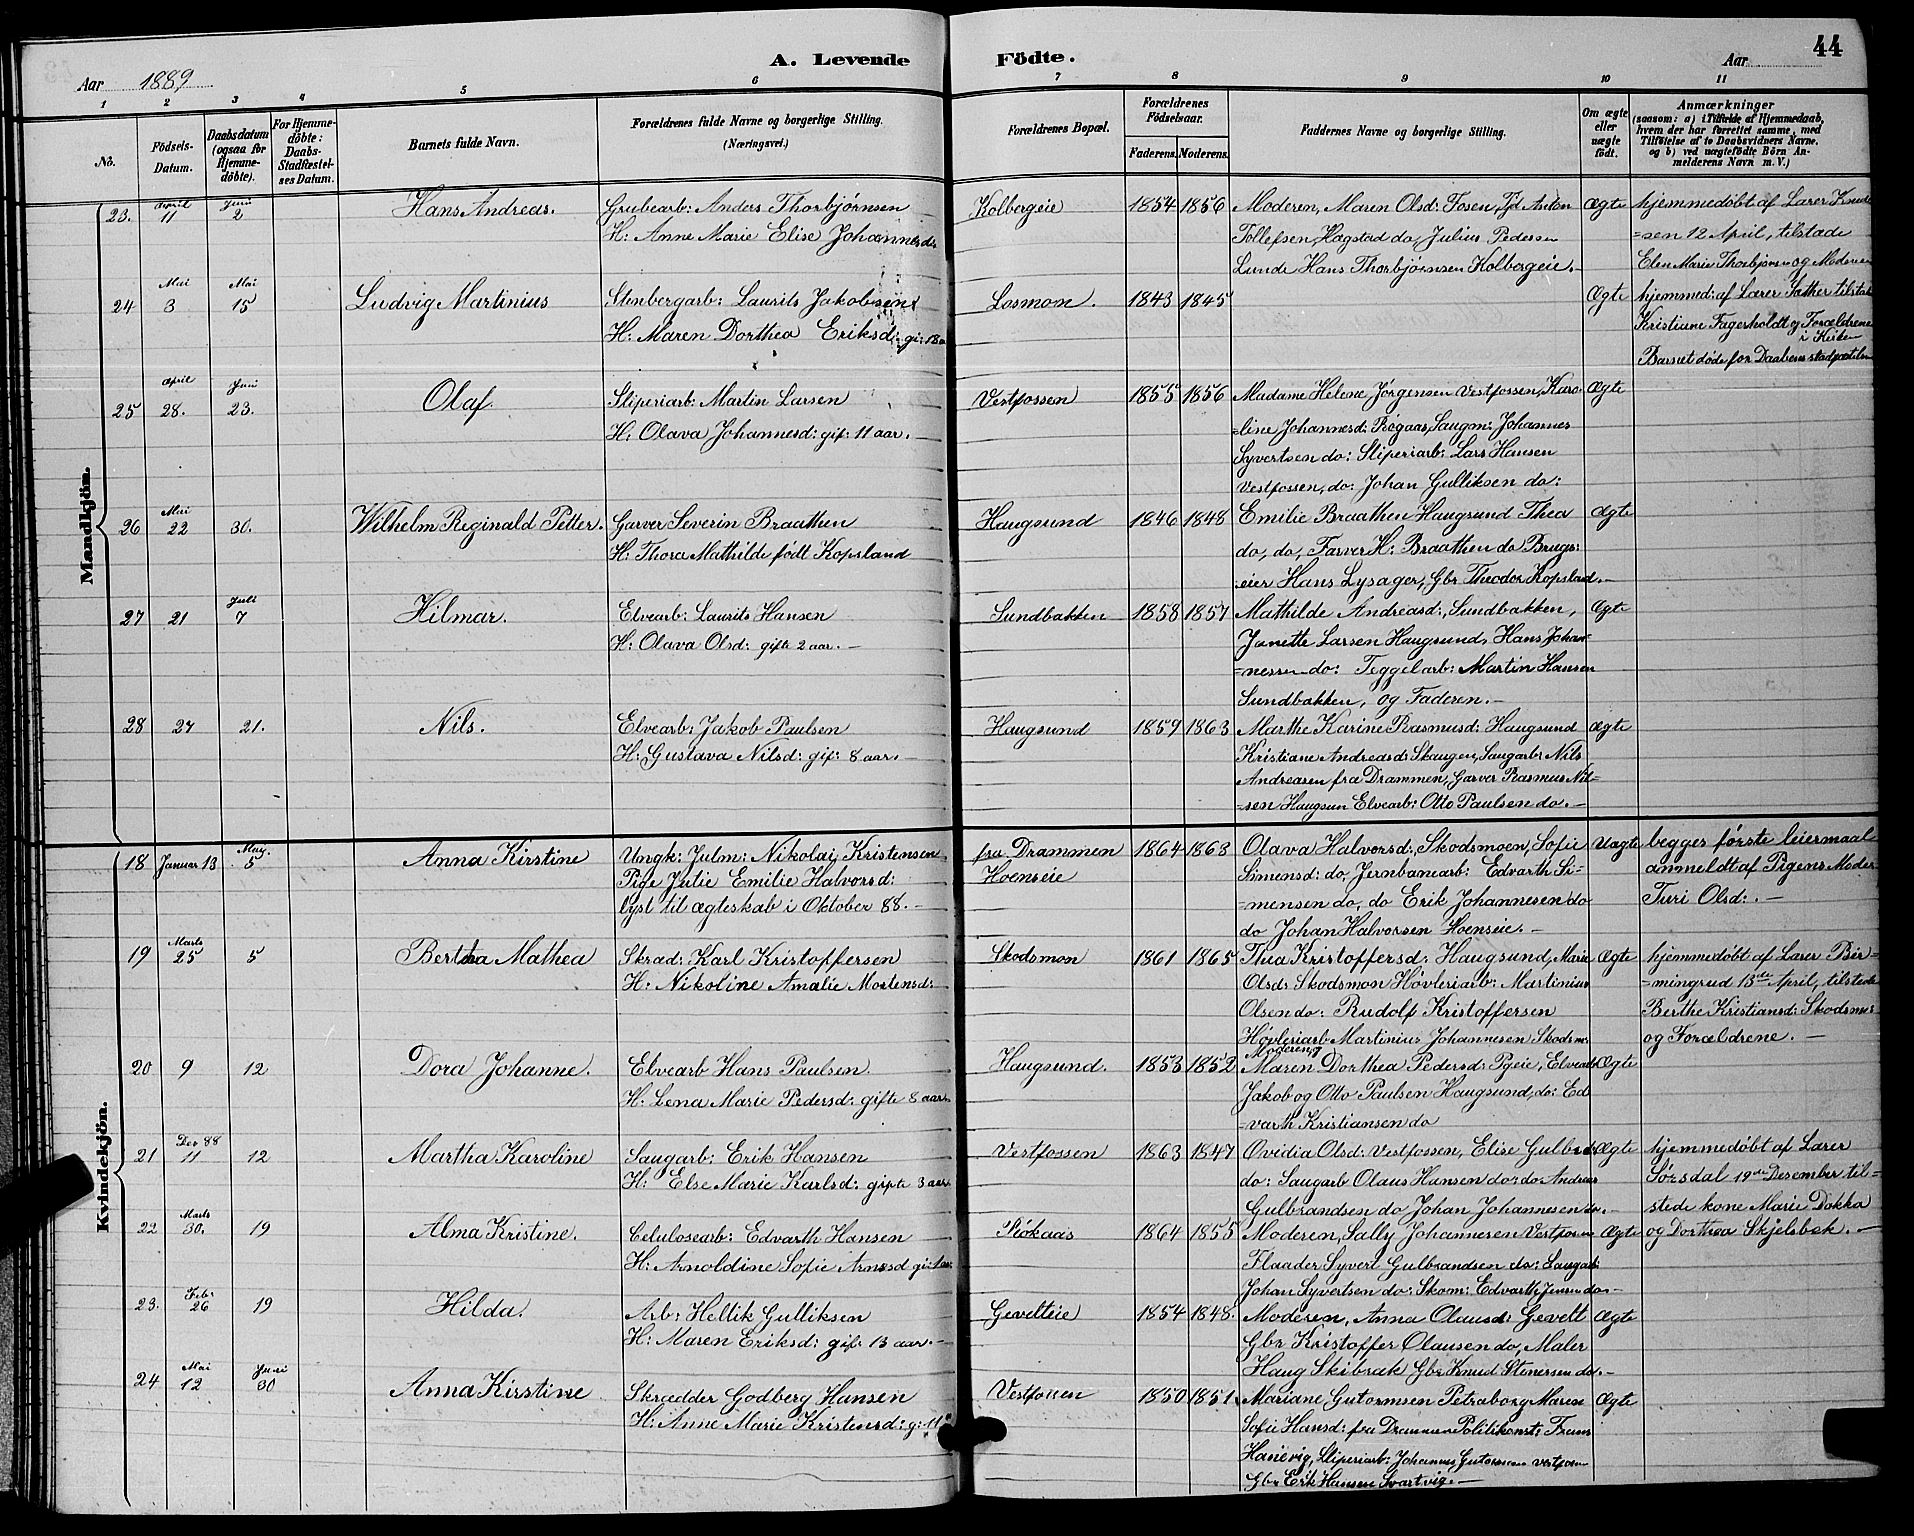 44
A. Levende Födte.
Aar 1889
Aar
1 2 3 4 5 6 7 8 9 10 11
No.
Födsels-Datum.
Daabsdatum (ogsaa for Hjemme-döbte).
For Hjemme-döbte: Daabs-Stadfæstel-ses Datum.
Barnets fulde Navn.
Forældrenes fulde Navne og borgerlige Stilling. (Næringsvei.)
Forældrenes Bopæl.
Forældrenes Födselsaar.
Faderens. Moderens.
Faddernes Navne og borgerlige Stilling.
Om ægte eller uægte födt.
Anmærkninger
(saasom: a) i Tilfælde af Hjemmedaab, hvem der har forrettet samme, med Tilföielse af to Daabsvidners Navne. og b) ved uægtefödte Börn Anmelderens Navn m. V.)
Mandkjön.
23. April 11 Juni 2 Hans Andreas. Grubearb: Anders Thorbjørnsen Kolbergeie 1854 1856 Moderen, Maren Olsd: Fosen, Tjd Anton Ægte hjemmedøbt af Lærer Knud
H: Anne Marie Elise Johannesd: Tollefsen, Hagstad do, Julius Pedersen =sen 12 April, tilstæde
Lunde Hans Thorbjørnsen Kolbergeie. Elen Marie Thorbjørnsen og Moderen
24 Mai 3 Mai 15 Ludvig Martinius Stenbergarb: Laurits Jakobsen Losmon. 1843 1845 Ægte hjemmed: af Lærer Sæther tilstæde
H: Maren Dorthea Eriksd: gi: 18a Kristiane Fagerholdt og Forældrene
i Kirken
Barnet døde før Daabens stadfæstelse
25 April 28. Juni 23. Olaf. Sliperiarb: Martin Larsen Vestfossen 1855 1856 Madame Helene Jørgensen Vestfossen, Karo Ægte
H: Olava Johannesd: gif: 11 aar. =line Johannesd: Røgaas, Saugm: Johannes
Syvertsen do: Sliperiarb: Lars Hansen
Vestfossen, do: Johan Gulliksen do:
26 Mai 22 30. Wilhelm Reginald Petter. Garver Severin Braathen Haugsund 1846 1848 Emilie Braathen Haugsund Thea Ægte
H: Thora Mathilde født Kopsland do, do, Farver H: Braathen do Brugs:
eier Hans Lysager, Gbr Theodor Kopsland.
27 21 Juli 7 Hilmar. Elvearb: Laurits Hansen Sundbakken 1858 1857 Mathilde Andreasd:, Sundbakken, Ægte
H: Olava Olsd: gifte 2 aar. Janette Larsen Haugsund, Hans Johan=
=nessen do: Teggelarb: Martin Hansen
Sundbakken, og Faderen.
28 27 21. Nils. Elvearb: Jakob Paulsen Haugsund 1859 1863 Marthe Karine Rasmusd: Haugsund Ægte
H: Gustava Nilsd: gif: 8 aar. Kristiane Andreasd: Skaugen, Saugarb: Nils
Andreasen fra Drammen, Garver Rasmus Nil=
=sen Haugsun Elvearb: Otto Paulsen do.
Kvindekjön.
18 Januar 13 May. 5 Anna Kirstine Ungk: Julm: Nikolai Kristensen fra Drammen 1864 1863 Olava Halvorsd:, Skodsmoen, Sofie Uægte begges første leiermaal
Pige Julie Emilie Halvorsd: Hoenseie Simensd: do, Jernbanearb: Edvarth Si= anmeldt af Pigens Moder
lyst til ægteskab i Oktober 88. =mensen do, do Erik Johannesen do Turi Olsd:.
do Johan Halvorsen Hoenseie.
19 Marts 25 5 Bertha Mathea Skræd: Karl Kristoffersen Skodsmon 1861 1865 Thea Kristoffersd: Haugsund, Marie Ægte hjemmedøbt af Lærer Bir=
H: Nikoline Amalie Mortensd: Olsd: Skodsmon Høvleriarb: Martinius =mingrud 13de April, tilstede
Olsen do: Rudolf Kristoffersen Berthe Kristiansd: Skodsmo
Høvleriarb Martinius Johannesen Skodsm: og Forældrene.
20 9 12 Dora Johanne. Elvearb Hans Paulsen Haugsund. 1853 1852 Moderen og
Maren Dorthea Pedersd: Pgeie, Elvearb: Ægte
H: Lena Marie Pedersd: gifte 8 aar Jakob og Otto Paulsen Haugsund, do: Ed
=varth Kristiansen do
21 Des 88 11 12 Martha Karoline Saugarb: Erik Hansen Vestfossen 1863 1847 Ovidia Olsd: Vestfossen, Elise Gulbrd: Ægte hjemmedøbt af Lærer
H: Else Marie Karlsd: gifte 3 aar do: Saugarb Olaus Hansen do: do Andreas Sørsdal 19de Desember til=
Gulbrandsen do Johan Johannesen do. stede kone Marie Dokka
22 Marts 30. 19 Alma Kristine. Celulosearb: Edvarth Hansen Røkaas 1864 1855 Moderen, Sally Johannesen Vestfossen Ægte og Dorthea Skjelsbek.
H: Arnoldine Sofie Arnesd gi: 1 aar Flaader Syvert Gulbrandsen do: Saugarb:
Johan Syvertsen do: Skom: Edvarth Jensen do
23. Febr 26 19 Hilda. Arb: Hellik Gulliksen Gevelteie 1854 1848. Moderen, Anna Olausd: Gevelt Ægte
H: Maren Eriksd: gif: 13 aar. Gbr Kristoffer Olausen do, Maler
Haug Skibræk Gbr Knud Stenersen do.
24 Mai 12 Juni 30 Anna Kirstine Skrædder Godberg Hansen Vestfossen 1850 1851. Mariane Gutormsen Petraborg Maren Ægte
H: Anne Marie Kristensd: g: 11 Sofie Hansd: fra Drammen Politikonst: Frans
Hanevig, Sliperiarb: Johannes Gutormsen Vestfossen
Gbr Erik Hansen Svartvig.